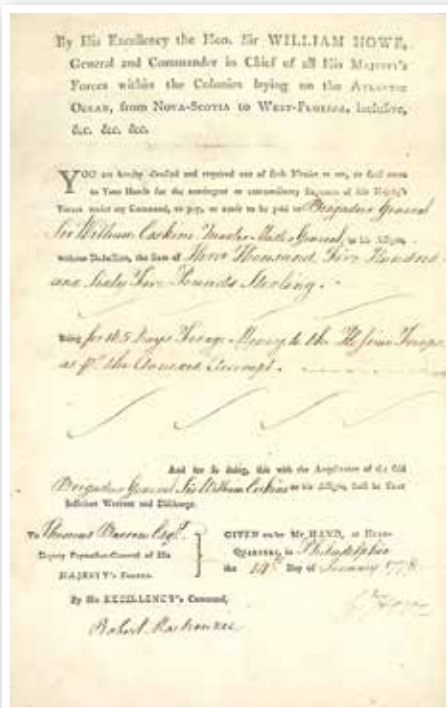 By His Excellency the Hon. Sir WILLIAM HOWE,
General and Commander in Chief of all His MAJESTY's
Forces within the Colonies laying on the ATLANTIC
OCEAN, from NOVA-SCOTIA to WEST-FLORIDA, inclusive,
&c. &c. &c.
YOU are hereby directed and required out of such Monies as are, or shall come
to Your Hands for the contingent or extraordinary Expences of his Majesty's
Forces under my Command, to pay, or cause to be paid to Brigadier General
Sir William Erskine Quarter Master General, or his Assigns,
without Deduction, the Sum of Thousand Five Hundred
and Sixty Five Pounds Sterling.
Being for 165 Days Forage Money to the Hessian Troops
as pr. the Annexed Account.
And for so doing, this with the Acquittance of the said
Brigadier General Sir William Erskine or his Assigns, shall be Your
sufficient Warrant and Discharge.
To Thomas Barrow Esqr.
Deputy Paymaster-General of His
MAJESTY's Forces.
GIVEN under My HAND, at HEAD-
QUARTERS, in Philadelphia
the 14th Day of January 1778
By His EXCELLENCY's Command,
W Howe
Robert Mackenzie